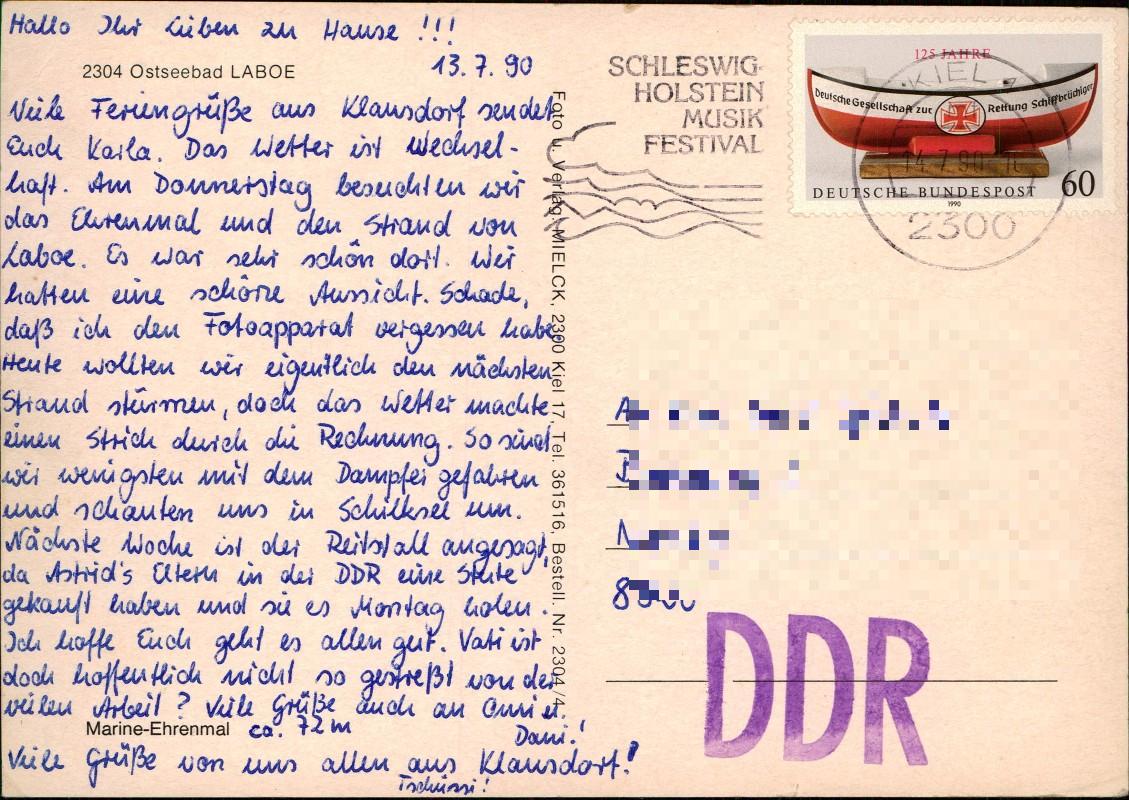 Hallo Ihr Lieben zu Hause !!!
2304 Ostseebad LABOE
13.7.90
Viele Feriengrüße aus Klausdorf sendet
Euch Karla. Das Wetter ist wechsel-
haft. Am Donnerstag besuchten wir
das Ehrenmal und den Strand von
Laboe. Es war sehr schön dort. Wir
hatten eine schöne Aussicht. Schade,
daß ich den Fotoapparat vergessen habe
Heute wollten wir eigentlich den nächsten
Strand stürmen, doch das Wetter machte
einen Strich durch die Rechnung. So sind
wir wenigsten mit dem Dampfer gefahren
und schauten uns in Schilksee um.
Nächste Woche ist der Reitstall angesagt,
da Astrid's Eltern in der DDR eine Stute
gekauft haben und sie es Montag holen.
Ich hoffe Euch geht es allen gut. Vati ist
doch hoffentlich nicht so gestreßt von der
vielen Arbeit? Viele Grüße auch an Omi u.
Dani!
Marine-Ehrenmal ca. 72 m
Viele Grüße von uns allen aus Klausdorf!
Tschüssi!
Foto u. Verlag: MIELCK, 2300 Kiel 17, Tel. 361516, Bestell. Nr. 2304/4
SCHLESWIG-
HOLSTEIN
MUSIK
FESTIVAL
125 JAHRE
Deutsche Gesellschaft zur Rettung Schiffbrüchiger
DEUTSCHE BUNDESPOST 60
1990
KIEL 7
14.7.90
2300
DDR